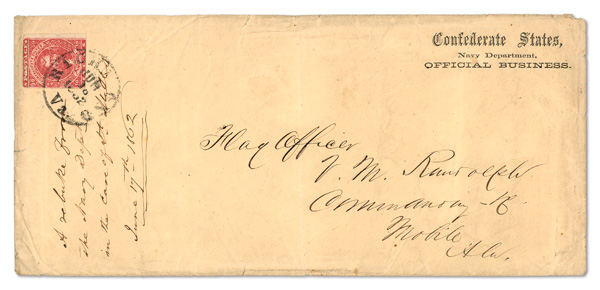 Confederate States,
Navy Department,
OFFICIAL BUSINESS.
Flag Officer
V. M. Randolph
Mobile
Ala.
A rebuke from
the Navy Dept
in the case of
June 17th 1862